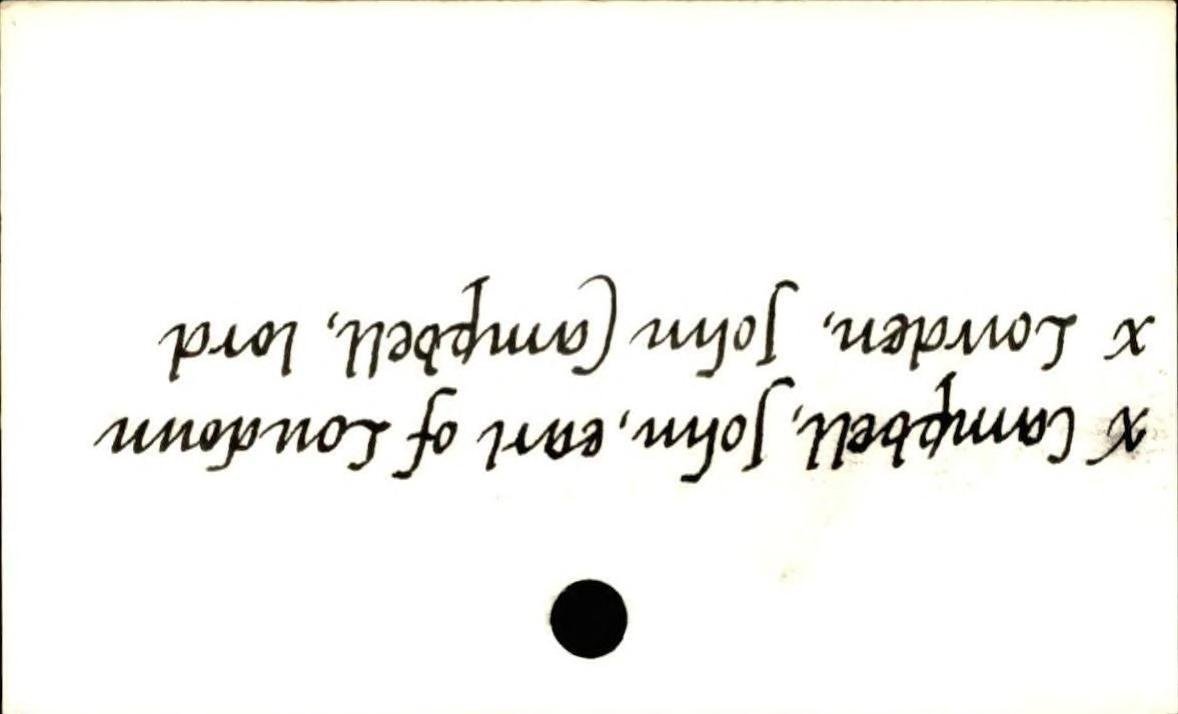 x Campbell, John, earl of Loudoun
x Lowden, John Campbell, lord